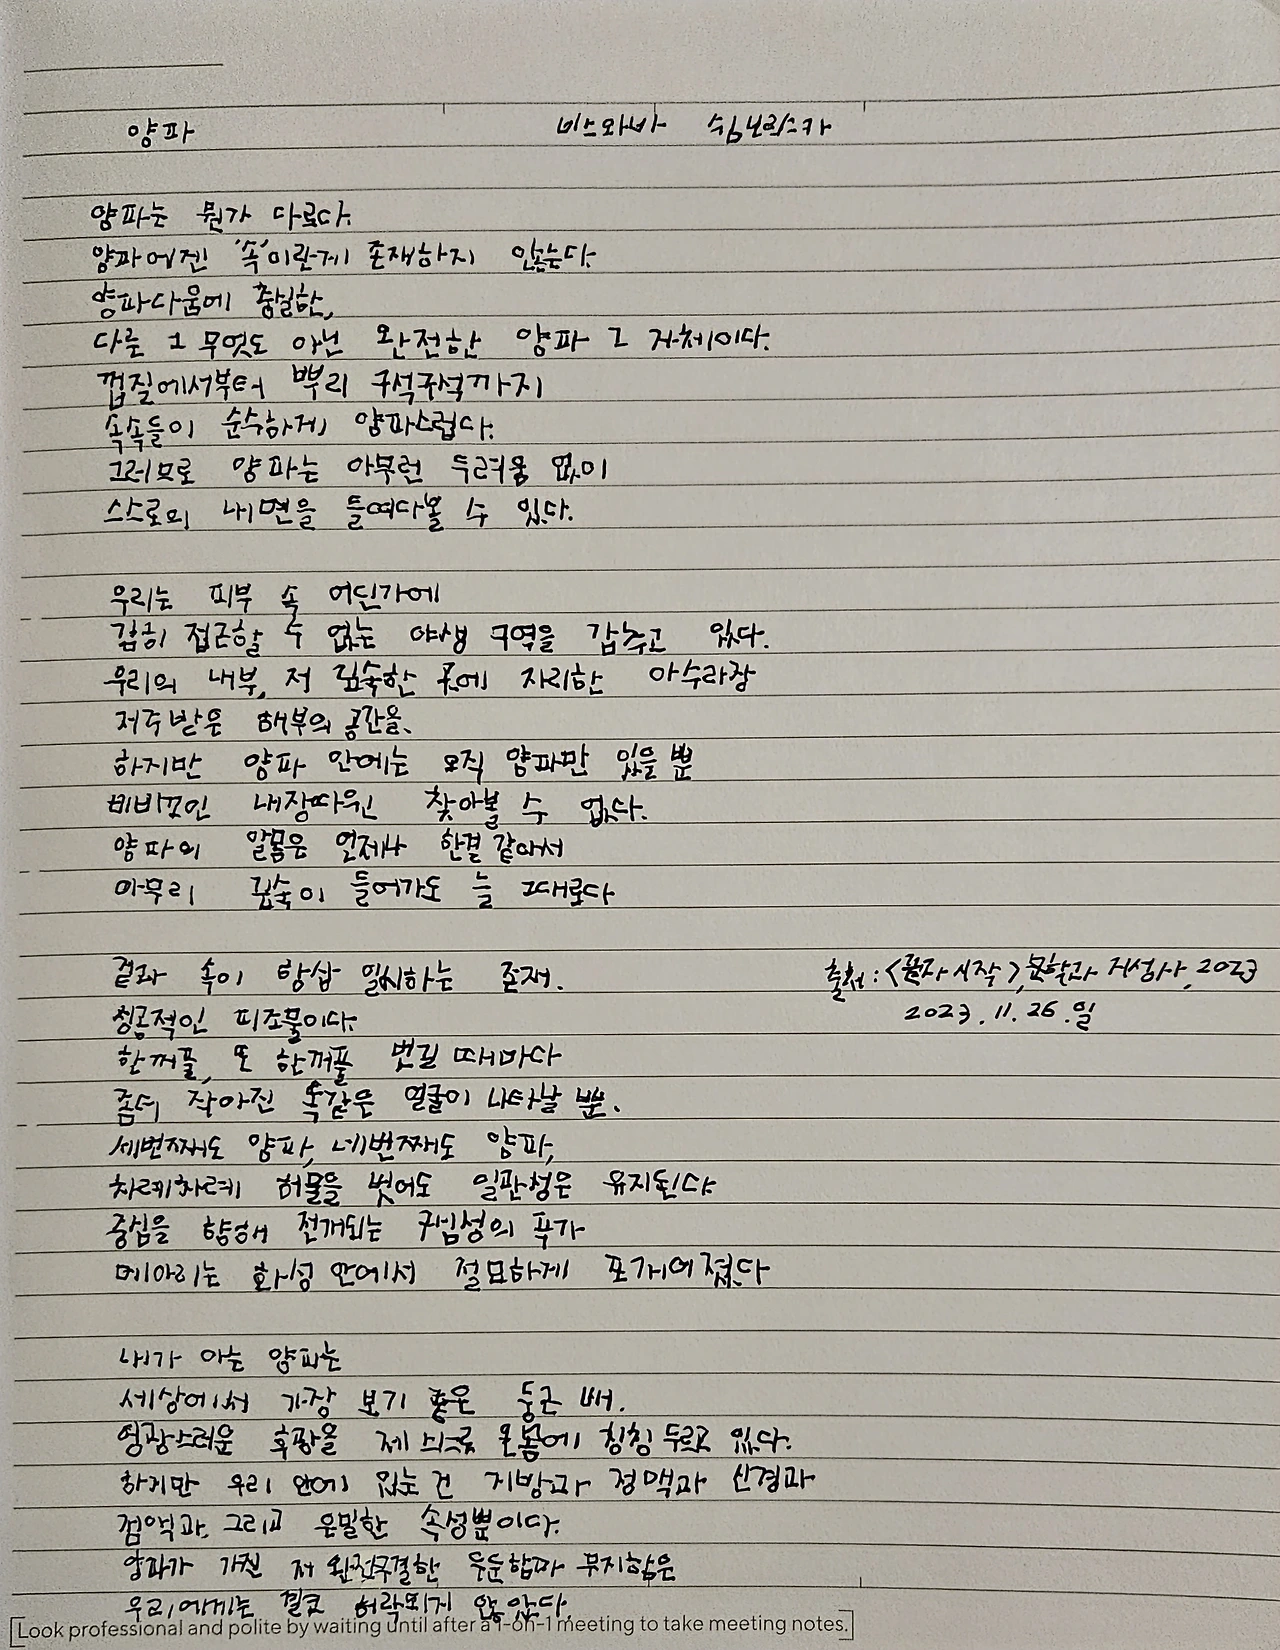 양파 비스와바 쉼보르스카
양파는 뭔가 다르다.
양파에겐 '속'이란게 존재하지 않는다.
양파다움에 충실한,
다른 그 무엇도 아닌 완전한 양파 그 자체이다.
껍질에서부터 뿌리 구석구석까지
속속들이 순수하게 양파스럽다.
그러므로 양파는 아무런 두려움 없이
스스로의 내면을 들여다볼 수 있다.
우리는 피부 속 어딘가에
감히 접근할 수 없는 야생 구역을 감추고 있다.
우리의 내부, 저 깊숙한 곳에 자리한 아수라장
저주받은 해부의 공간을.
하지만 양파 안에는 오직 양파만 있을 뿐
비비꼬인 내장따윈 찾아볼 수 없다.
양파의 알몸은 언제나 한결 같아서
아무리 깊숙이 들어가도 늘 그대로다
겉과 속이 항상 일치하는 존재.
성공적인 피조물이다.
한꺼풀, 또 한꺼풀 벗길 때마다
좀더 작아진 똑같은 얼굴이 나타날 뿐.
세번째도 양파, 네번째도 양파,
차례차례 허물을 벗어도 일관성은 유지된다
중심을 향해 전개되는 구심성의 푸가
메아리는 화성 안에서 절묘하게 포개어졌다
출처: <끝과 시작>, 문학과 지성사, 2023
2023. 11. 26. 일
내가 아는 양파는
세상에서 가장 보기 좋은 둥근 배.
영광스러운 후광을 제 스스로 온몸에 칭칭 두르고 있다.
하지만 우리 안에 있는 건 지방과 정맥과 신경과
점액과, 그리고 은밀한 속성뿐이다.
양파가 가진 저 완전무결한 우둔함과 무지함은
우리에게는 결코 허락되지 않았다.
[Look professional and polite by waiting until after a 1-on-1 meeting to take meeting notes.]